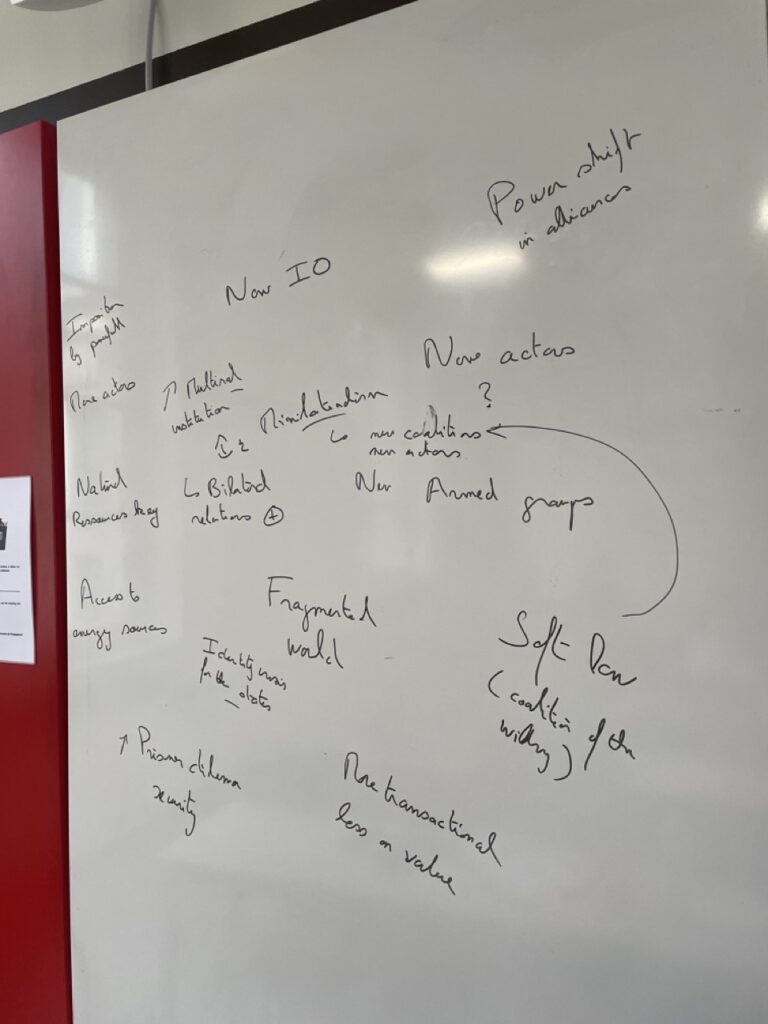 Power shift
in alliances
New IO
Imposition
by
More actors
↑ Multilateral
institution
Minilateralism
↳ new coalitions
new actors
New actors
?
Natural
Ressources key
↳ Bilateral
relations ⊕
New Armed groups
Access to
energy sources
Fragmented
world
Identity crisis
for the states
Soft Pow
(coalition of the
willing)
↑ Prisoner dilemma
security
More transactional
less on value